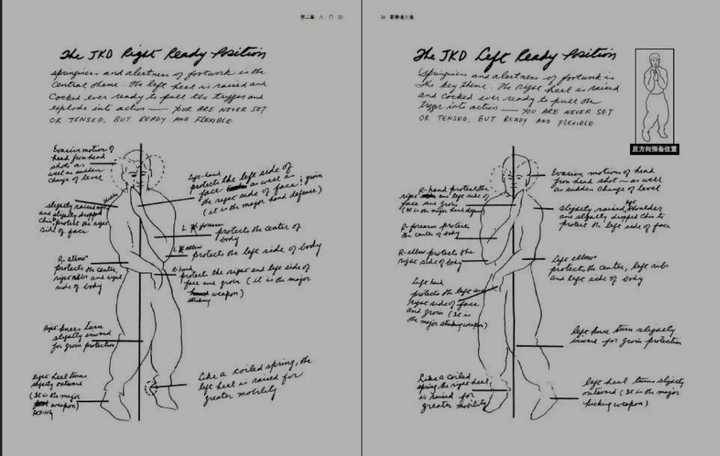 The JKD Right Ready Position
springiness and alertness of footwork is the
central theme. the left heel is raised and
cocked ever ready to pull the trigger and
explode into action — YOU ARE NEVER SET
OR TENSED, BUT READY AND FLEXIBLE
Evasive motion of
head from head
shots as
well as sudden
change of level
slightly raised
and slightly dropped
chin protect the right
side of face
R. elbow
protects the center,
right ribs and right
side of body
right knee turn
slightly inward
for groin protection
right heel turns
slightly outward
(It is the major
weapon)
Left hand
protect the left side of
face as well as
the right side of face; groin
(it is the major hand defense)
L forearm
protects the center of
body
L elbow
protects the left side of body
R. hand
protect the right and left side of
face and groin (it is the major
weapon)
Like a coiled spring, the
left heel is raised for
greater mobility
The JKD Left Ready Position
Springiness and alertness of footwork is
the key theme. The right heel is raised
and cocked ever ready to pull the
trigger into action — YOU ARE NEVER SET
OR TENSED, BUT READY AND FLEXIBLE
反方向预备位置
R. hand protects the
right and left side of
face and groin
(It is the major hand defense)
R. forearm protects
the center of body
R. elbow protects the
right side of body
Left hand
protects the left and
right side of face
and groin (It is
the major striking weapon)
Like a coiled
spring, the right heel
is raised for
greater mobility
Evasive motion of head
from head shot — as well
as sudden change of level
slightly raised shoulder
and slightly dropped chin to
protect the left side of face
left elbow
protects the center, left rib
and left side of body
left knee turn slightly
inward for groin protection
left heel turns slightly
outward (It is the major
kicking weapon)